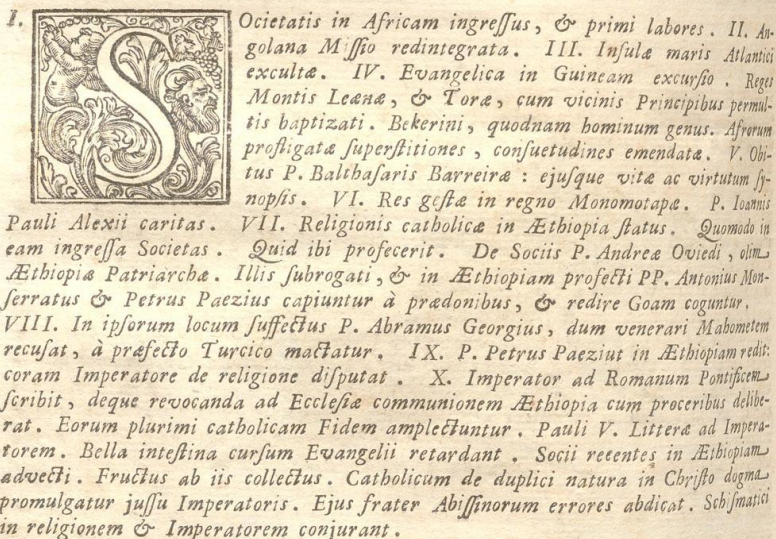 I. SOcietatis in Africam ingreſſus, & primi labores. II. An-
golana Miſſio redintegrata. III. Inſulæ maris Atlantici
excultæ. IV. Evangelica in Guineam excurſio. Reges
Montis Leænæ, & Toræ, cum vicinis Principibus permul-
tis baptizati. Bekerini, quodnam hominum genus. Afrorum
profligatæ ſuperſtitiones, conſuetudines emendatæ. V. Obi-
tus P. Balthaſaris Barreiræ: ejuſque vitæ ac virtutum ſy-
nopſis. VI. Res geſtæ in regno Monomotapæ. P. Ioannis
Pauli Alexii caritas. VII. Religionis catholicæ in Æthiopia ſtatus. Quomodo in
eam ingreſſa Societas. Quid ibi profecerit. De Sociis P. Andreæ Oviedi, olim
Æthiopiæ Patriarchæ. Illis ſubrogati, & in Æthiopiam profecti PP. Antonius Mon-
ſerratus & Petrus Paezius capiuntur à prædonibus, & redire Goam coguntur.
VIII. In ipſorum locum ſuffectus P. Abramus Georgius, dum venerari Mahometem
recuſat, à præfecto Turcico mactatur. IX. P. Petrus Paeziut in Æthiopiam redit:
coram Imperatore de religione diſputat. X. Imperator ad Romanum Pontificem
ſcribit, deque revocanda ad Eccleſiæ communionem Æthiopia cum proceribus delibe-
rat. Eorum plurimi catholicam Fidem amplectuntur. Pauli V. Litteræ ad Impera-
torem. Bella inteſtina curſum Evangelii retardant. Socii recentes in Æthiopiam
advecti. Fructus ab iis collectus. Catholicum de duplici natura in Chriſto dogma
promulgatur juſſu Imperatoris. Ejus frater Abiſſinorum errores abdicat. Schiſmatici
in religionem & Imperatorem conjurant.